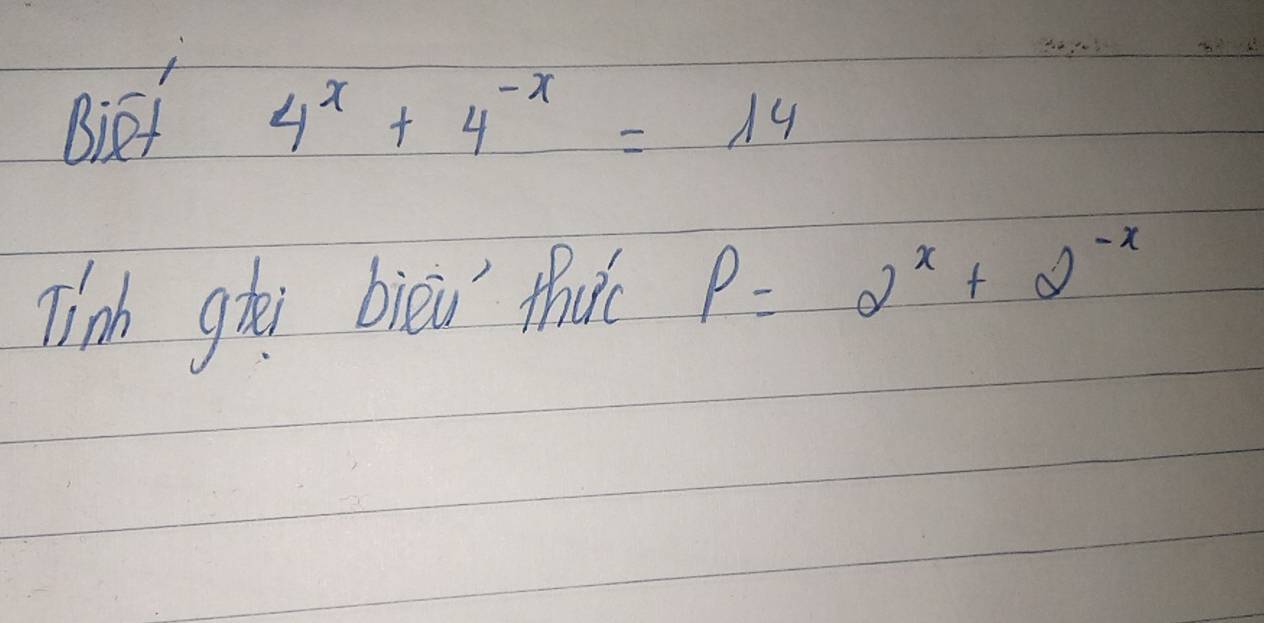 Biết 4^x + 4^-x = 14
Tính gtrị biểu thức P = 2^x + 2^-x